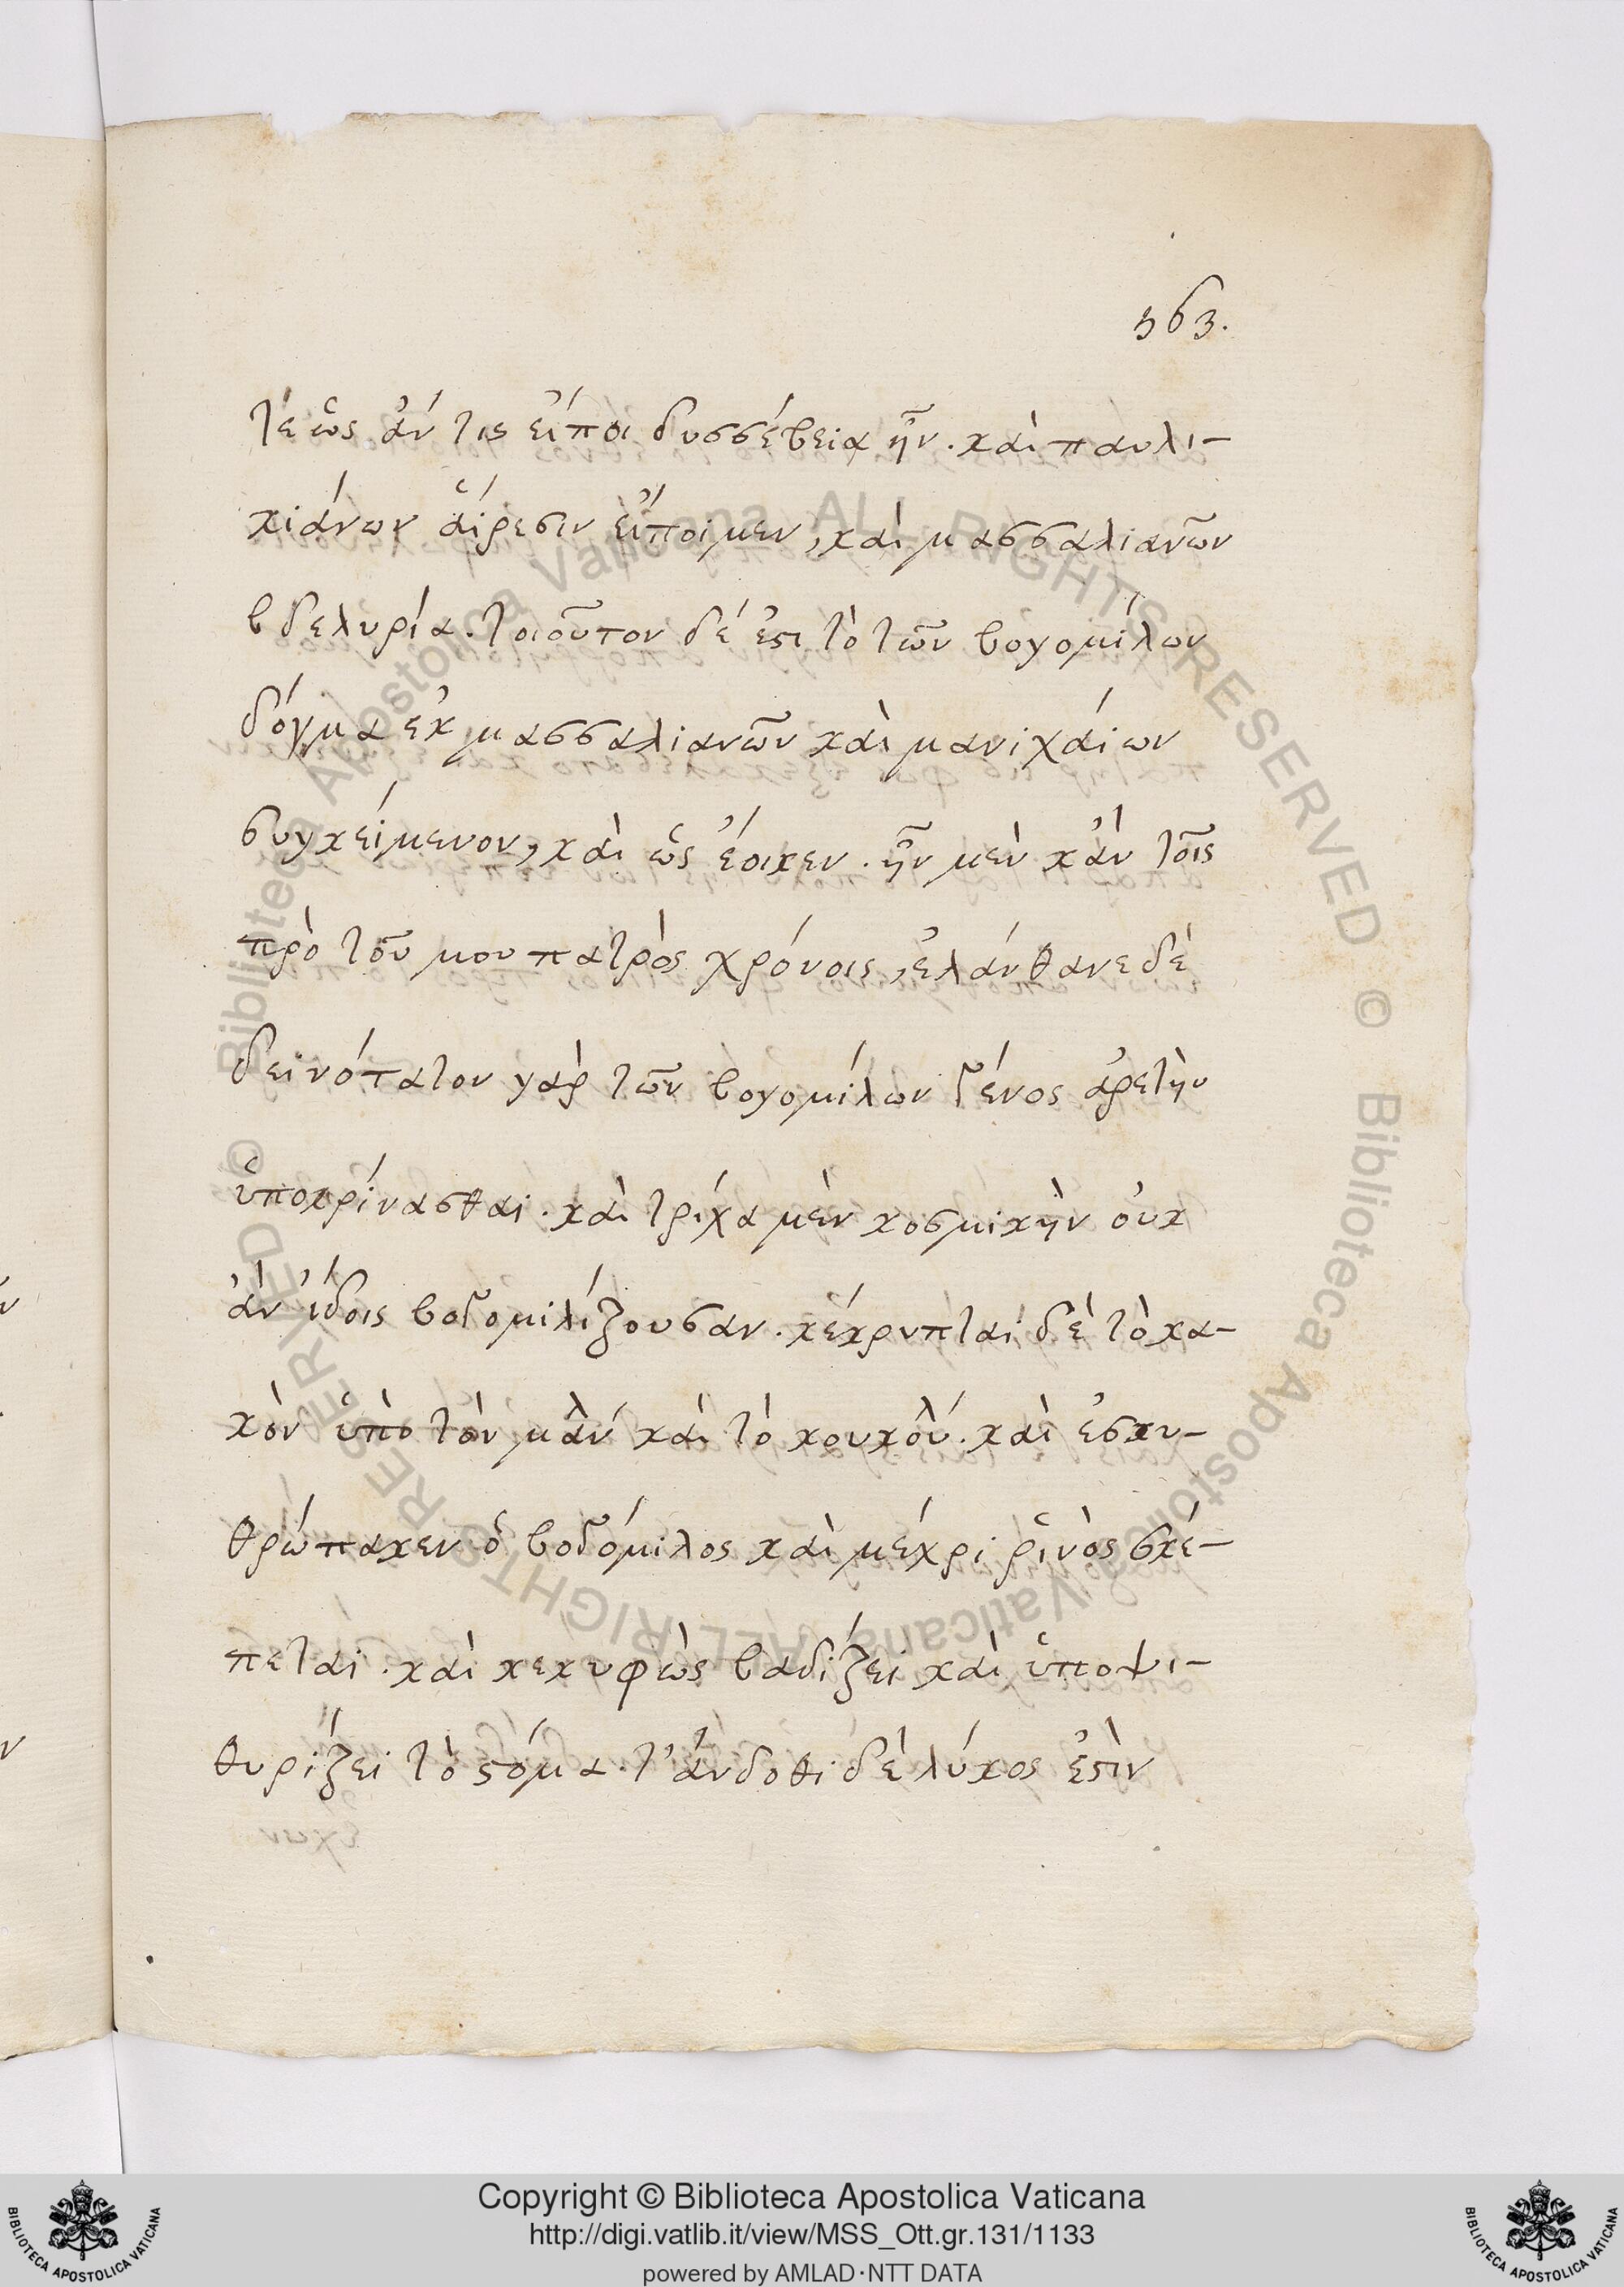 563.
τέ ὡς ἄν τις εἴποι δυσσέβεια ἦν. καὶ παυλι-
κιάνων αἵρεσιν εἴποιμεν, καὶ μασσαλιανῶν
βδελυρία. τοιοῦτον δέ ἐστι τὸ τῶν βογομίλων
δόγμα ἐκ μασσαλιανῶν καὶ μανιχαίων
συγκείμενον, καὶ ὡς ἔοικεν. ἦν μὲν κἀν τοῖς
πρὸ τοῦ μου πατρὸς χρόνοις, ἐλάνθανε δέ
δεινότατον γὰρ τῶν βογομίλων γένος ἀρετὴν
ὑποκρίνασθαι. καὶ τρίχα μὲν κοσμικὴν οὐκ
ἂν ἴδοις βογομιλίζουσαν. κέκρυπται δὲ τὸ κα-
κὸν ὑπὸ τὸν μαν^λ καὶ τὸ κουκού^λ. καὶ ἐσκυ-
θρώπακεν ὁ βογόμιλος καὶ μέχρι ῥινὸς σκέ-
πεται. καὶ κεκυφὼς βαδίζει καὶ ὑποψι-
θυρίζει τὸ στόμα. τ᾽ἄνδοθι δὲ λύκος ἐστὶν
Copyright © Biblioteca Apostolica Vaticana
http://digi.vatlib.it/view/MSS_Ott.gr.131/1133
powered by AMLAD·NTT DATA
BIBLIOTECA APOSTOLICA VATICANA
BIBLIOTECA APOSTOLICA VATICANA
Biblioteca Apostolica Vaticana ALL RIGHTS RESERVED ©
Biblioteca Apostolica Vaticana ALL RIGHTS RESERVED ©